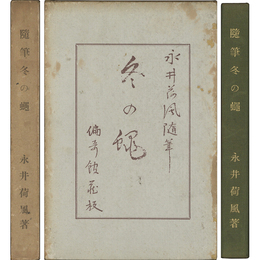 隨筆冬の蠅 永井荷風著
永井荷風随筆
冬の蠅
偏奇館蔵板
隨筆冬の蠅 永井荷風著